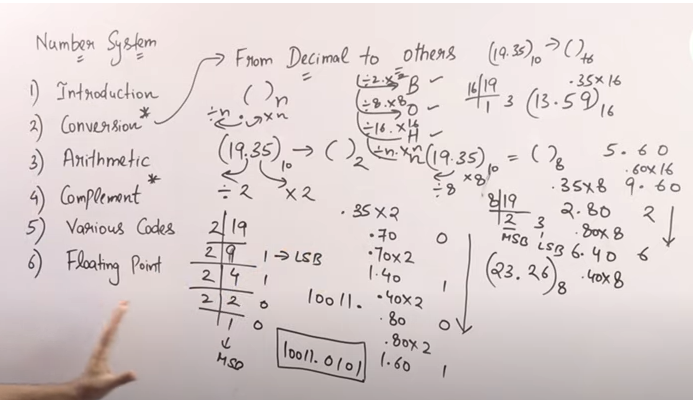 Number System
1) Introduction
2) Conversion*
3) Arithmetic
4) Complement*
5) Various Codes
6) Floating Point
From Decimal to others
( )n
÷n . ×n
÷2 . ×2 B ✓
÷8 . ×8 O ✓
÷16 . ×16 H ✓
÷n . ×n
(19.35)10 → ( )2
÷2 ×2
2 | 19
2 | 9 1 → LSB
2 | 4 1
2 | 2 0
1 0
↓
MSD
10011.
10011.0101
.35×2
.70 0
.70×2
1.40 1
.40×2
.80 0
.80×2
1.60 1
(19.35)10 = ( )8
÷8 ×8
8 | 19
2 3
MSD LSB
(23.26)8
.35×8
2.80 2
.80×8
6.40 6
.40×8
(19.35)10 → ( )16
16 | 19
1 3
(13.59)16
.35×16
5.60
.60×16
9.60